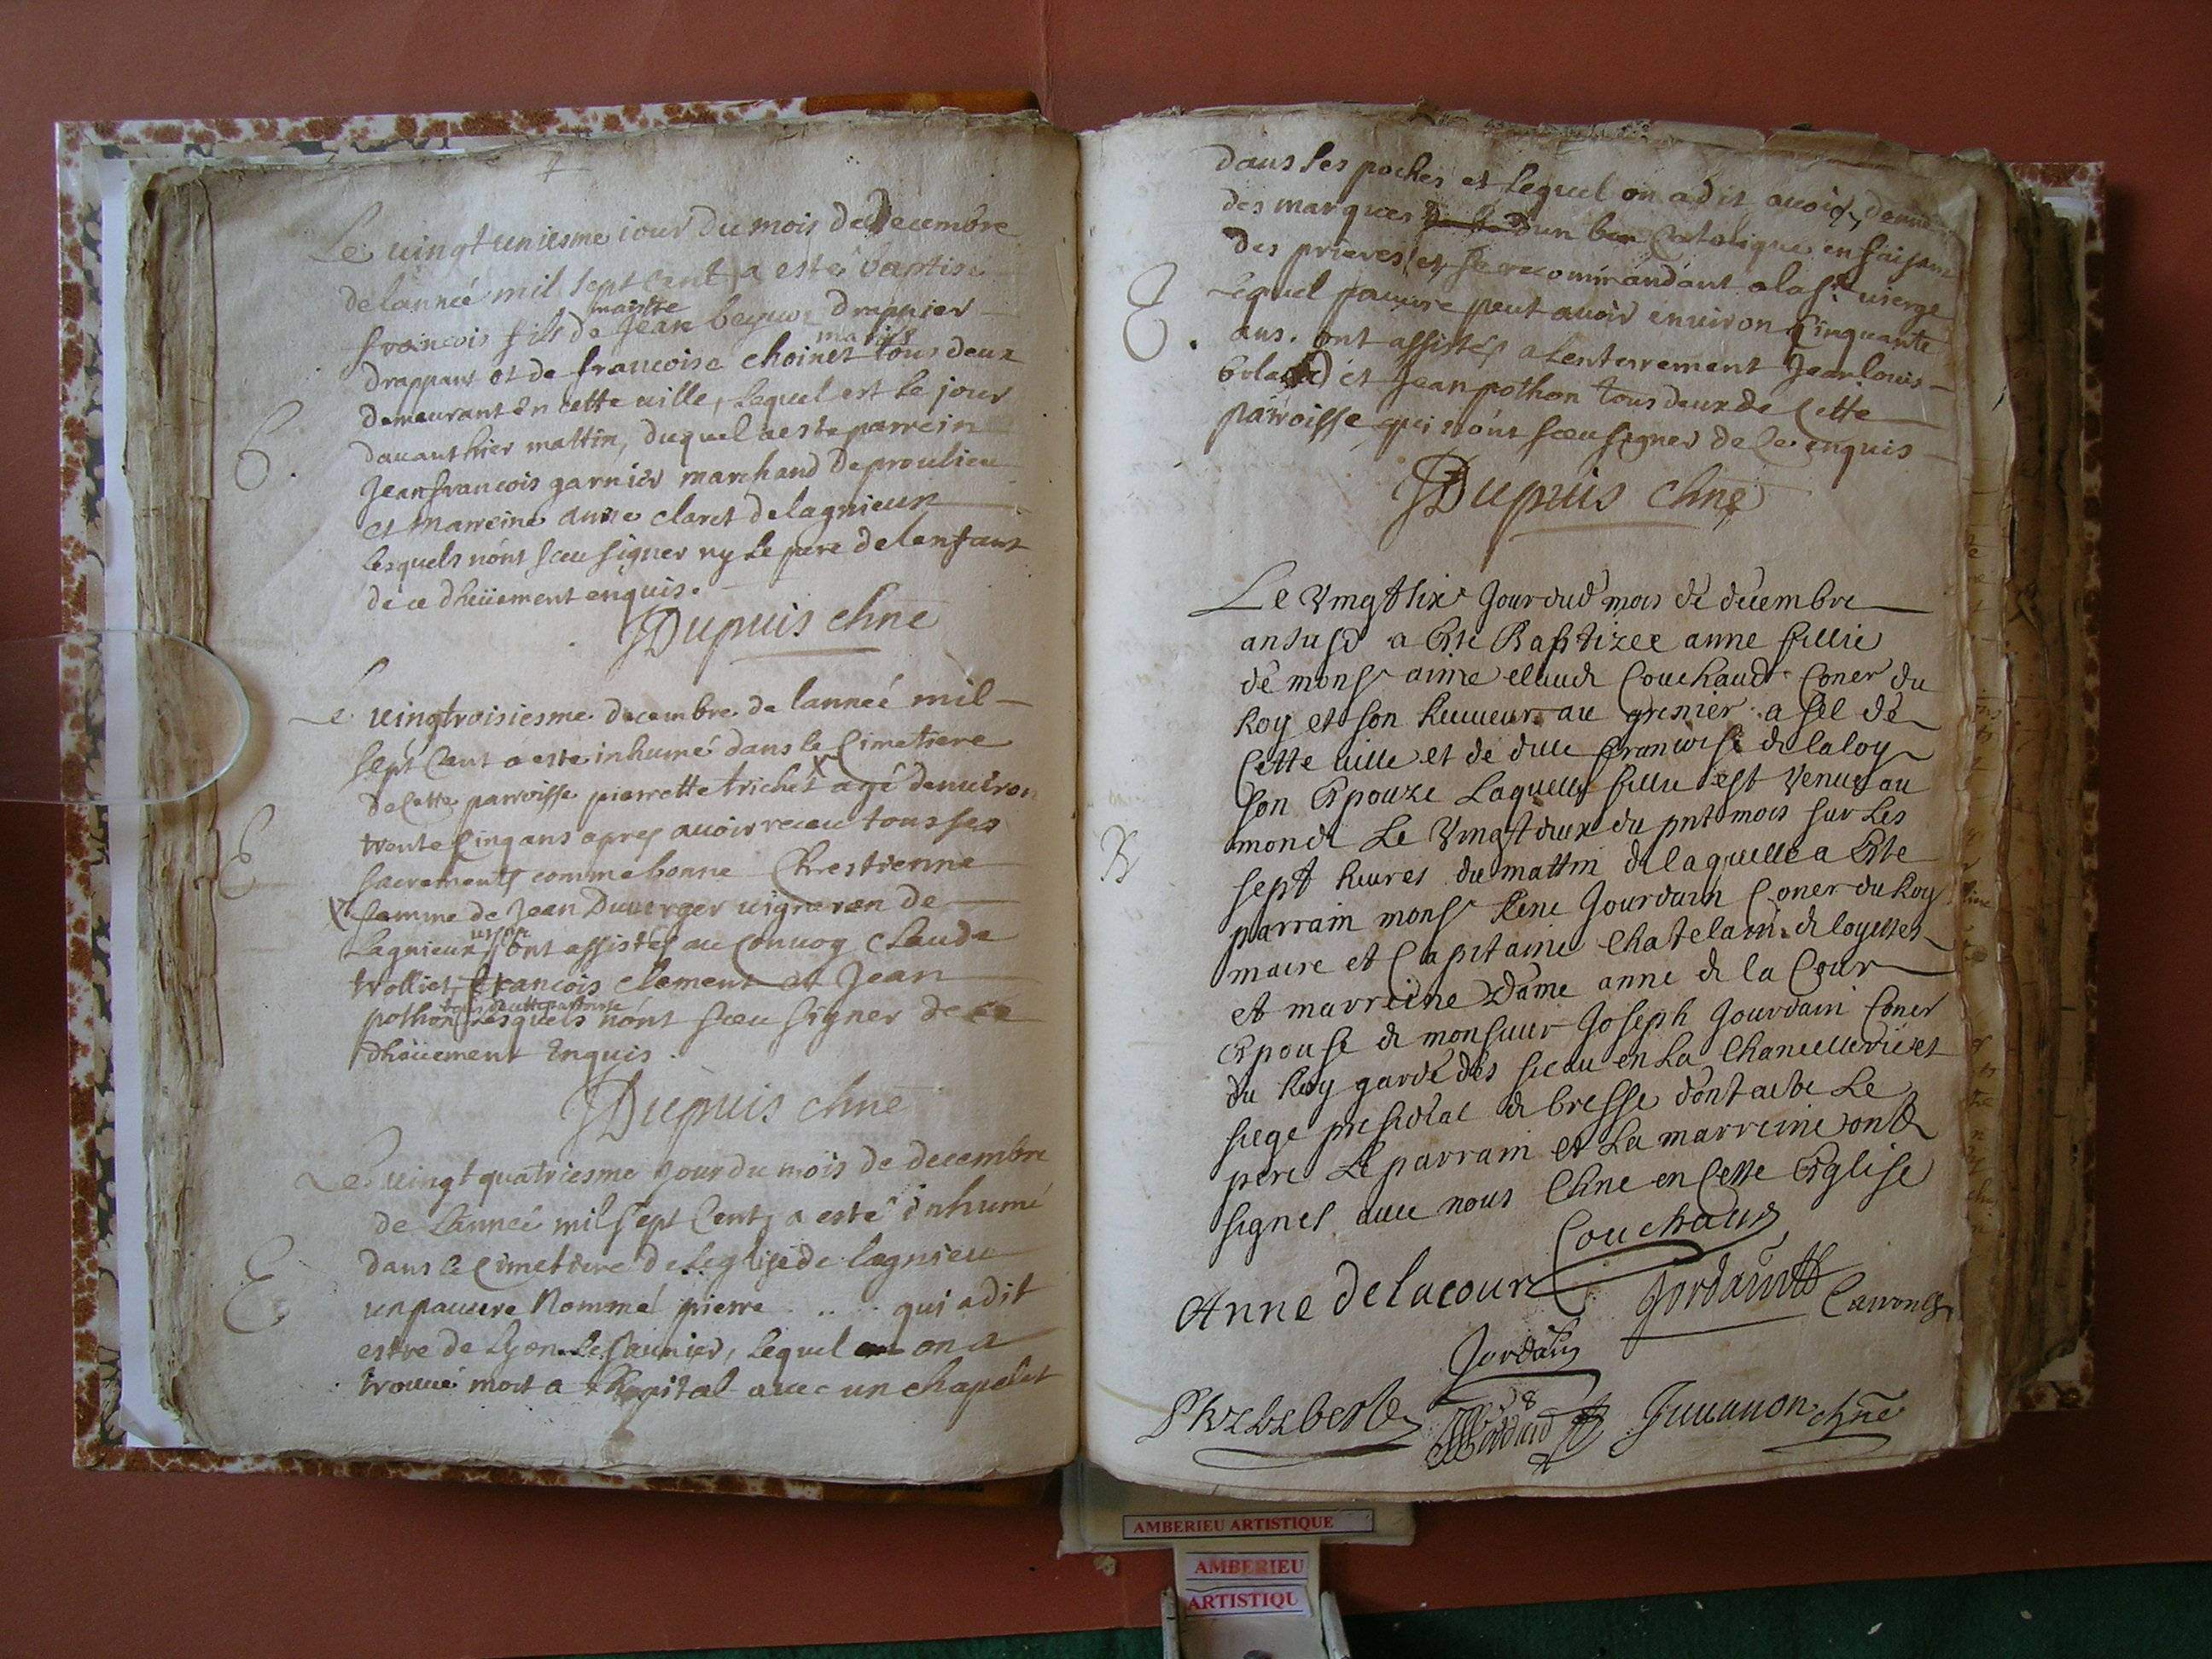 Le vingt uniesme iour du mois de Decembre
de lanneé mil sept cent a esté baptisé
francois fils de maistre Jean drappier
drappant et de francoise choinet mariés tous deux
demeurant en cette uille, lequel est le jour
dauanthier mattin, duquel a este parrein
Jean francois garnier marchand de proulieu
et marreine anne claret de lagnieux
lesquels nónt sceu signer ny le pere de lenfant
de ce dheüement enquis.
JDupuis chne
Le vingtroisiesme decembre de lanneé mil
sept Cent a este inhumé dans le Cimetiere
de Cette parroisse pierrette trichet agé denuiron
trente Cinq ans apres auoir receu tous ses
sacrements comme bonne Chrestienne
femme de Jean Duuerger uigneron de
Lagnieux ont assistés au Conuoy Claude
trolliet, francois Clement et Jean
pothon lesquels nónt sceu signer de ce
dheüement Enquis.
JDupuis chne
Le uingt quatriesme Jour du mois de decembre
de Lanneé mil sept Cent, a esté inhumé
dans le Cimetiere de leglise de lagnieu
un pauure Nommé pierre .. .. qui a dit
estre de Lyon lequel on a
trouué mort a lhopital auec un chapelet
dans ses poches et lequel on a dit auoir donné
des marques dun bon Catolique en faisant
des prieres et se recommandant a la ste uierge
lequel pauure peut auoir enuiron Cinquante
ans. ont assistés a lenterrement Jean louis
et Jean pothon tous deux de Cette
parroisse qui nónt sceu signer de ce enquis
JDupuis Chne
Le Vingt six Jour dud mois de decembre
an susd a Este Baptizee anne fillie
de monsr aime claude Couchaud Coner du
Roy et son Receueur au grenier a sel de
Cette uille et de dlle francoise de laloy
son Epouze Laquelle fillie est Venue au
monde Le Vingt deux du pnt mois sur Les
sept heures du mattin de laquelle a Este
parrain monsr Rene Jourdain Coner du Roy
maire et Capitaine Chatelain de loyettes
et marreine Dame anne de la Cour
Epouse de monsieur Joseph Jourdain Coner
du Roy garde des sceau en La Chancellerie et
siege presidial de bresse dont acte Le
pere Le parrain et La marreine ont
signes auec nous Chne en Cette Eglise
Couchaud
Anne delacour
Jordain
Jordain
Juuanon chne
AMBERIEU ARTISTIQUE
AMBERIEU
ARTISTIQU